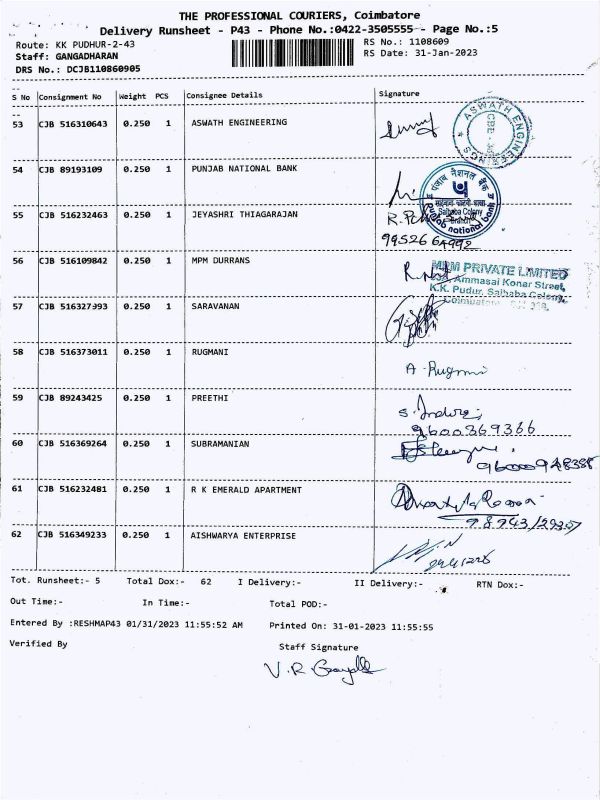 THE PROFESSIONAL COURIERS, Coimbatore
Delivery Runsheet - P43 - Phone No.:0422-3505555 - Page No.:5
Route: KK PUDHUR-2-43 RS No.: 1108609
Staff: GANGADHARAN RS Date: 31-Jan-2023
DRS No.: DCJB110860905
S No Consignment No Weight PCS Consignee Details Signature
53 CJB 516310643 0.250 1 ASWATH ENGINEERING
ASWATH ENGINEERINGS
54 CJB 89193109 0.250 1 PUNJAB NATIONAL BANK
पंजाब नैशनल बैंक
Saibaba Colony
Branch
Punjab national bank
55 CJB 516232463 0.250 1 JEYASHRI THIAGARAJAN
99526 64992
56 CJB 516109842 0.250 1 MPM DURRANS
MPM PRIVATE LIMITED
Ammasai Konar Street,
K.K. Pudur, Saibaba Colony,
Coimbatore
57 CJB 516327993 0.250 1 SARAVANAN
58 CJB 516373011 0.250 1 RUGMANI
A. Rugmi
59 CJB 89243425 0.250 1 PREETHI
9600369366
60 CJB 516369264 0.250 1 SUBRAMANIAN
9600948388
61 CJB 516232481 0.250 1 R K EMERALD APARTMENT
62 CJB 516349233 0.250 1 AISHWARYA ENTERPRISE
Tot. Runsheet:- 5 Total Dox:- 62 I Delivery:- II Delivery:- RTN Dox:-
Out Time:- In Time:- Total POD:-
Entered By :RESHMAP43 01/31/2023 11:55:52 AM Printed On: 31-01-2023 11:55:55
Verified By Staff Signature